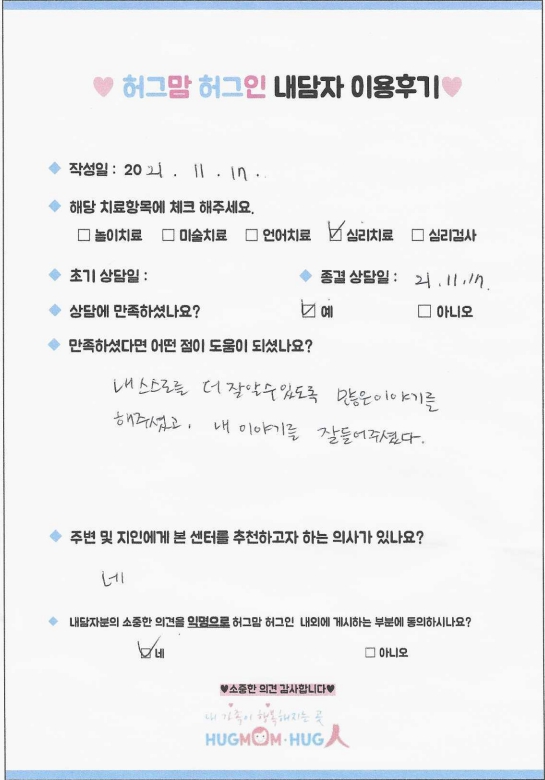 ♥ 허그맘 허그인 내담자 이용후기 ♥
◆ 작성일 : 2021 . 11 . 17 .
◆ 해당 치료항목에 체크 해주세요.
☐ 놀이치료 ☐ 미술치료 ☐ 언어치료 ☑ 심리치료 ☐ 심리검사
◆ 초기 상담일 : ◆ 종결 상담일 : 21 . 11 . 17.
◆ 상담에 만족하셨나요? ☑ 예 ☐ 아니오
◆ 만족하셨다면 어떤 점이 도움이 되셨나요?
내 스스로를 더 잘알수있도록 많은이야기를
해주셨고, 내 이야기를 잘들어주셨다.
◆ 주변 및 지인에게 본 센터를 추천하고자 하는 의사가 있나요?
네
◆ 내담자분의 소중한 의견을 익명으로 허그맘 허그인 내외에 게시하는 부분에 동의하시나요?
☑ 네 ☐ 아니오
♥소중한 의견 감사합니다♥
내 가족이 행복해지는 곳
HUGMOM·HUG人